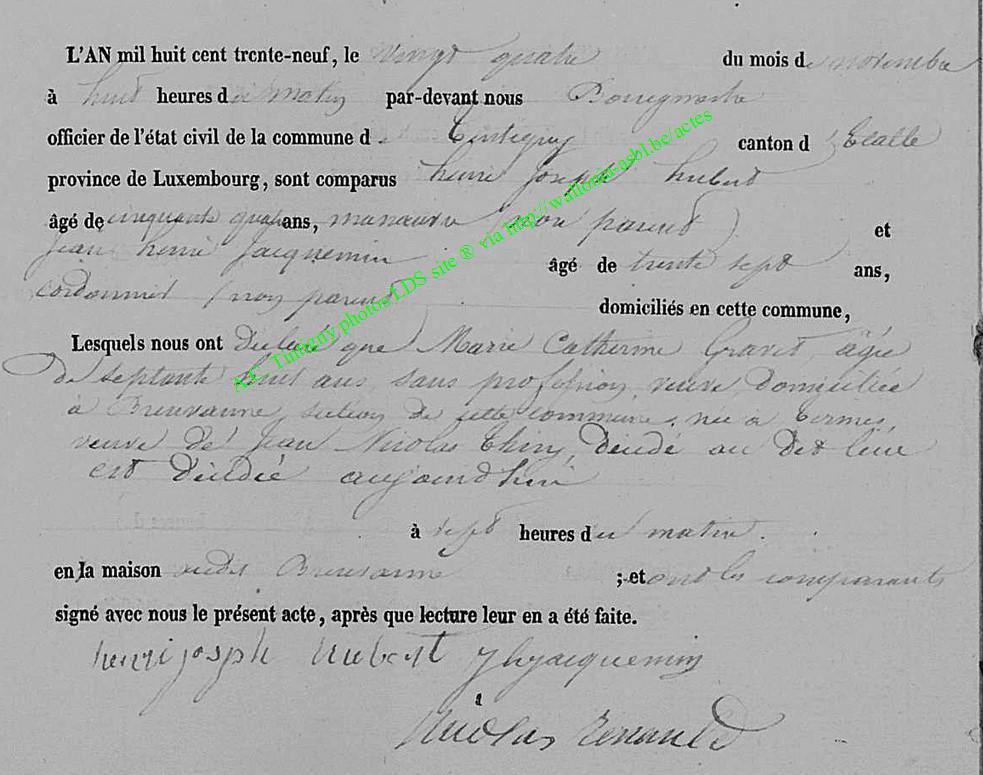 L'AN mil huit cent trente-neuf, le vingt quatre du mois de novembre
à huit heures du matin par-devant nous Bourgmestre
officier de l'état civil de la commune de Tintigny canton d'Etalle
province de Luxembourg, sont comparus henri joseph hubert
âgé de cinquante quatre ans, manœuvre (non parent) et
jean henri jacquemin âgé de trente sept ans,
cordonnier (non parent) domiciliés en cette commune,
Lesquels nous ont déclaré que Marie Catherine Gravet agée
de septante huit ans, sans profession, veuve domiciliée
à Breuvanne, section de cette commune, née à termes,
veuve de jean Nicolas thiry, décédé au dit lieu
est décédée aujourd'hui
à sept heures du matin.
en la maison audit Breuvanne ; et ont les comparants
signé avec nous le présent acte, après que lecture leur en a été faite.
henri joseph hubert jhjacquemin
Nicolas Renauld
Tintigny photos LDS site ® via http://wallonia-asbl.be/actes